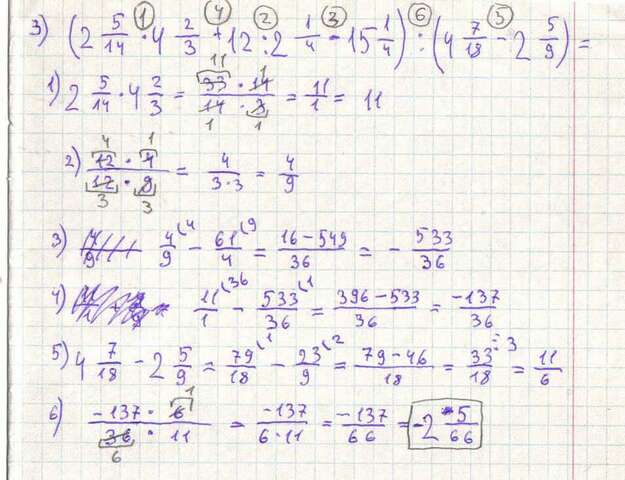 3) (2 5/14 · 4 2/3 + 12 : 2 1/4 - 15 1/4) : (4 7/18 - 2 5/9) =
① ④ ② ③ ⑥ ⑤
1) 2 5/14 · 4 2/3 = 33 · 14 / 14 · 3 = 11/1 = 11
11 1
1 1
2) 12 · 4 / 12 · 9 = 4 / 3·3 = 4/9
4 1
3 3
3) 4/9 (4 - 61/4 (9 = 16-549 / 36 = - 533/36
4) 11/1 (36 - 533/36 (1 = 396-533 / 36 = -137/36
5) 4 7/18 - 2 5/9 = 79/18 (1 - 23/9 (2 = 79-46 / 18 = 33/18 :3 = 11/6
6) -137 · 6 / 36 · 11 = -137 / 6·11 = -137/66 = -2 5/66
1
6